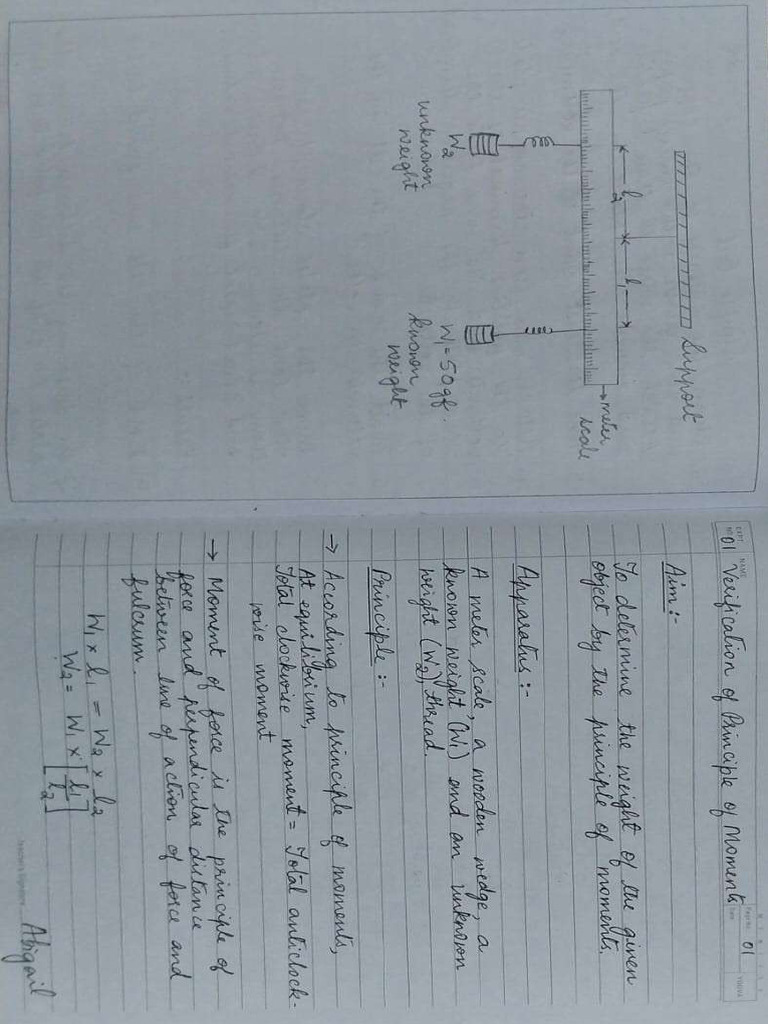 Support
l2
l1
meter
scale
W2
unknown
weight
W1 = 50gf.
known
weight
EXPT. NO.
NAME
Page No.
Date
YOUVA
01 Verification of Principle of Moments
01
Aim:-
To determine the weight of the given
object by the principle of moments.
Apparatus:-
A meter scale, a wooden wedge, a
known weight (W1) and an unknown
weight (W2), thread.
Principle:-
→ According to principle of moments,
At equilibrium,
Total clockwise moment = Total anticlock-
wise moment
→ Moment of force is the principle of
force and perpendicular distance
between line of action of force and
fulcrum.
W1 × l1 = W2 × l2
W2 = W1 × [l1/l2]
Teacher's Signature
Abigail